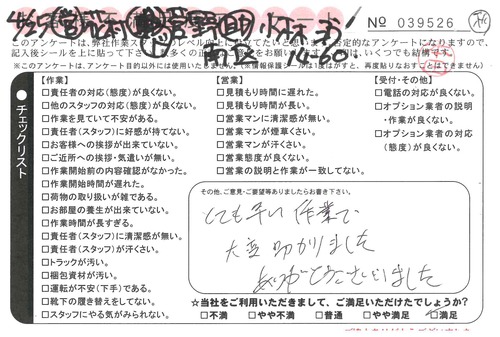 No 039526
このアンケートは、弊社作業スタッフのレベル向上に役立てたいと思います。お定的なアンケートになりますので、
【作業】
□責任者の対応(態度)が良くない。
□他のスタッフの対応(態度)が良くない。
□作業を見ていて不安がある。
□責任者(スタッフ)に好感が持てない。
□お客様への挨拶が出来ていない。
□ご近所への挨拶・気遣いが無い。
□作業開始前の内容確認がなかった。
□作業開始時間が遅れた。
□荷物の取り扱いが雑である。
□お部屋の養生が出来ていない。
□作業時間が長すぎる。
□責任者(スタッフ)に清潔感が無い。
□責任者(スタッフ)が汗くさい。
□トラックが汚い。
□梱包資材が汚い。
□運転が不安(下手)である。
□靴下の履き替えをしてない。
□スタッフにやる気がみられない。
【営業】
□見積もり時間に遅れた。
□見積もり時間が長い。
□営業マンに清潔感が無い。
□営業マンが煙草くさい。
□営業マンが汗くさい。
□営業態度が良くない。
□営業の説明と作業が一致してない。
【受付・その他】
□電話の対応が良くない。
□オプション業者の説明
・作業が良くない。
□オプション業者の対応
(態度)が良くない。
チェックリスト
その他、ご意見・ご要望等ありましたらお書き下さい。
とても早い作業で
大変助かりました
ありがとうございました
☆当社をご利用いただきまして、ご満足いただけたでしょうか?
□不満 □やや不満 □普通 □やや満足 □満足